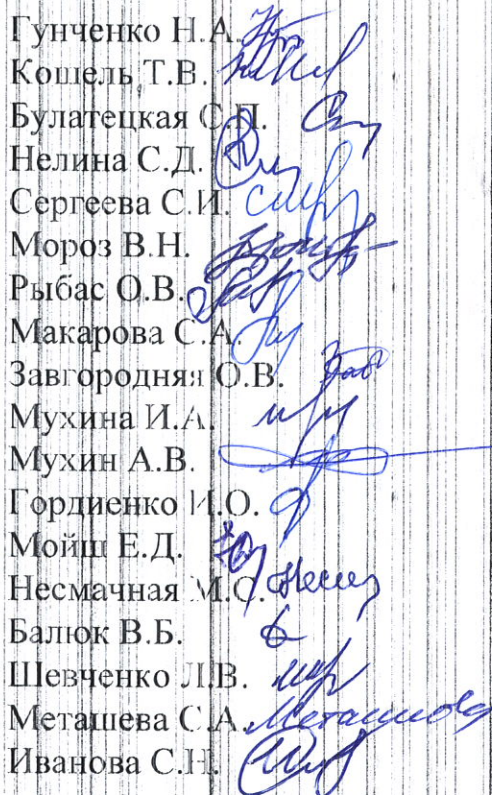 Гунченко Н.А.
Кошель Т.В.
Булатецкая С.П.
Нелина С.Д.
Сергеева С.И.
Мороз В.Н.
Рыбас О.В.
Макарова С.А.
Завгородняя О.В.
Мухина И.А.
Мухин А.В.
Гордиенко И.О.
Мойш Е.Д.
Несмачная М.С.
Балюк В.Б.
Шевченко Л.В.
Меташева С.А.
Иванова С.Н.